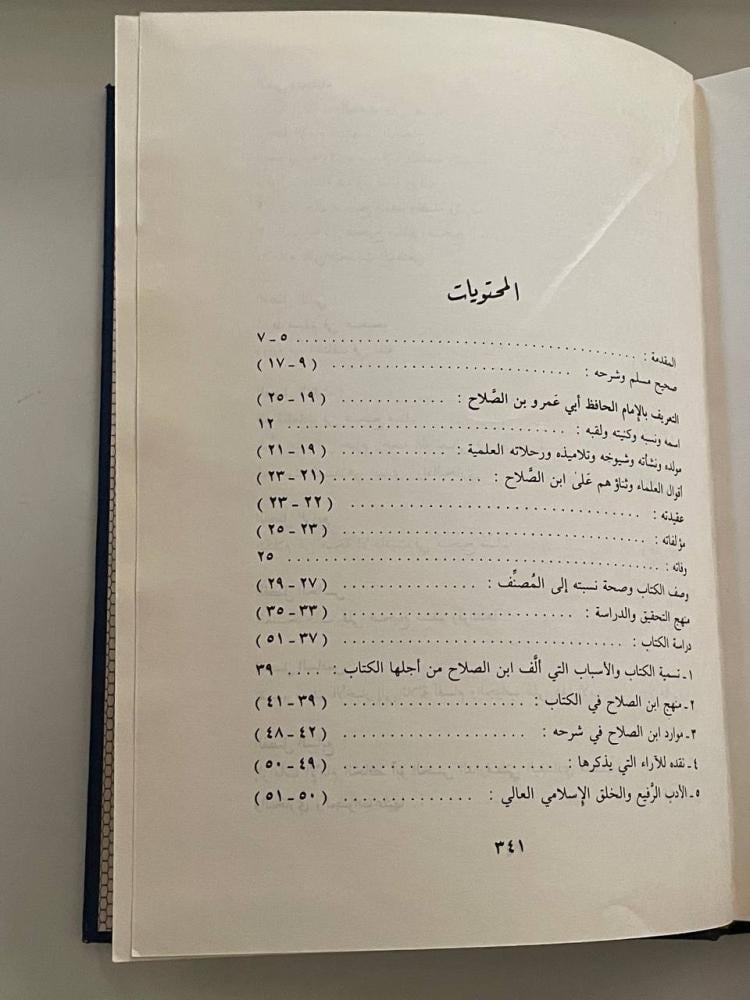 المحتويات
المقدمة : ٥ - ٧
صحيح مسلم وشرحه : ( ٩ - ١٧ )
التعريف بالإمام الحافظ أبي عَمرو بن الصَّلاح : ( ١٩ - ٢٥ )
اسمه ونسبه وكنيته ولقبه : ١٢
مولده ونشأته وشيوخه وتلاميذه ورحلاته العلمية : ( ١٩ - ٢١ )
أقوال العلماء وثناؤهم عَلىٰ ابن الصَّلاح : ( ٢١ - ٢٣ )
عقيدته : ( ٢٢ - ٢٣ )
مؤلفاته : ( ٢٣ - ٢٥ )
وفاته : ٢٥
وصف الكتاب وصحة نسبته إلى المُصنِّف : ( ٢٧ - ٢٩ )
منهج التحقيق والدراسة : ( ٣٣ - ٣٥ )
دراسة الكتاب : ( ٣٧ - ٥١ )
١ - تسمية الكتاب والأسباب التي ألَّف ابن الصلاح من أجلها الكتاب : ٣٩
٢ - منهج ابن الصلاح في الكتاب : ( ٣٩ - ٤١ )
٣ - موارد ابن الصلاح في شرحه : ( ٤٢ - ٤٨ )
٤ - نقده للآراء التي يذكرها : ( ٤٩ - ٥٠ )
٥ - الأدب الرَّفيع والخلق الإسلامي العالي : ( ٥٠ - ٥١ )
٣٤١